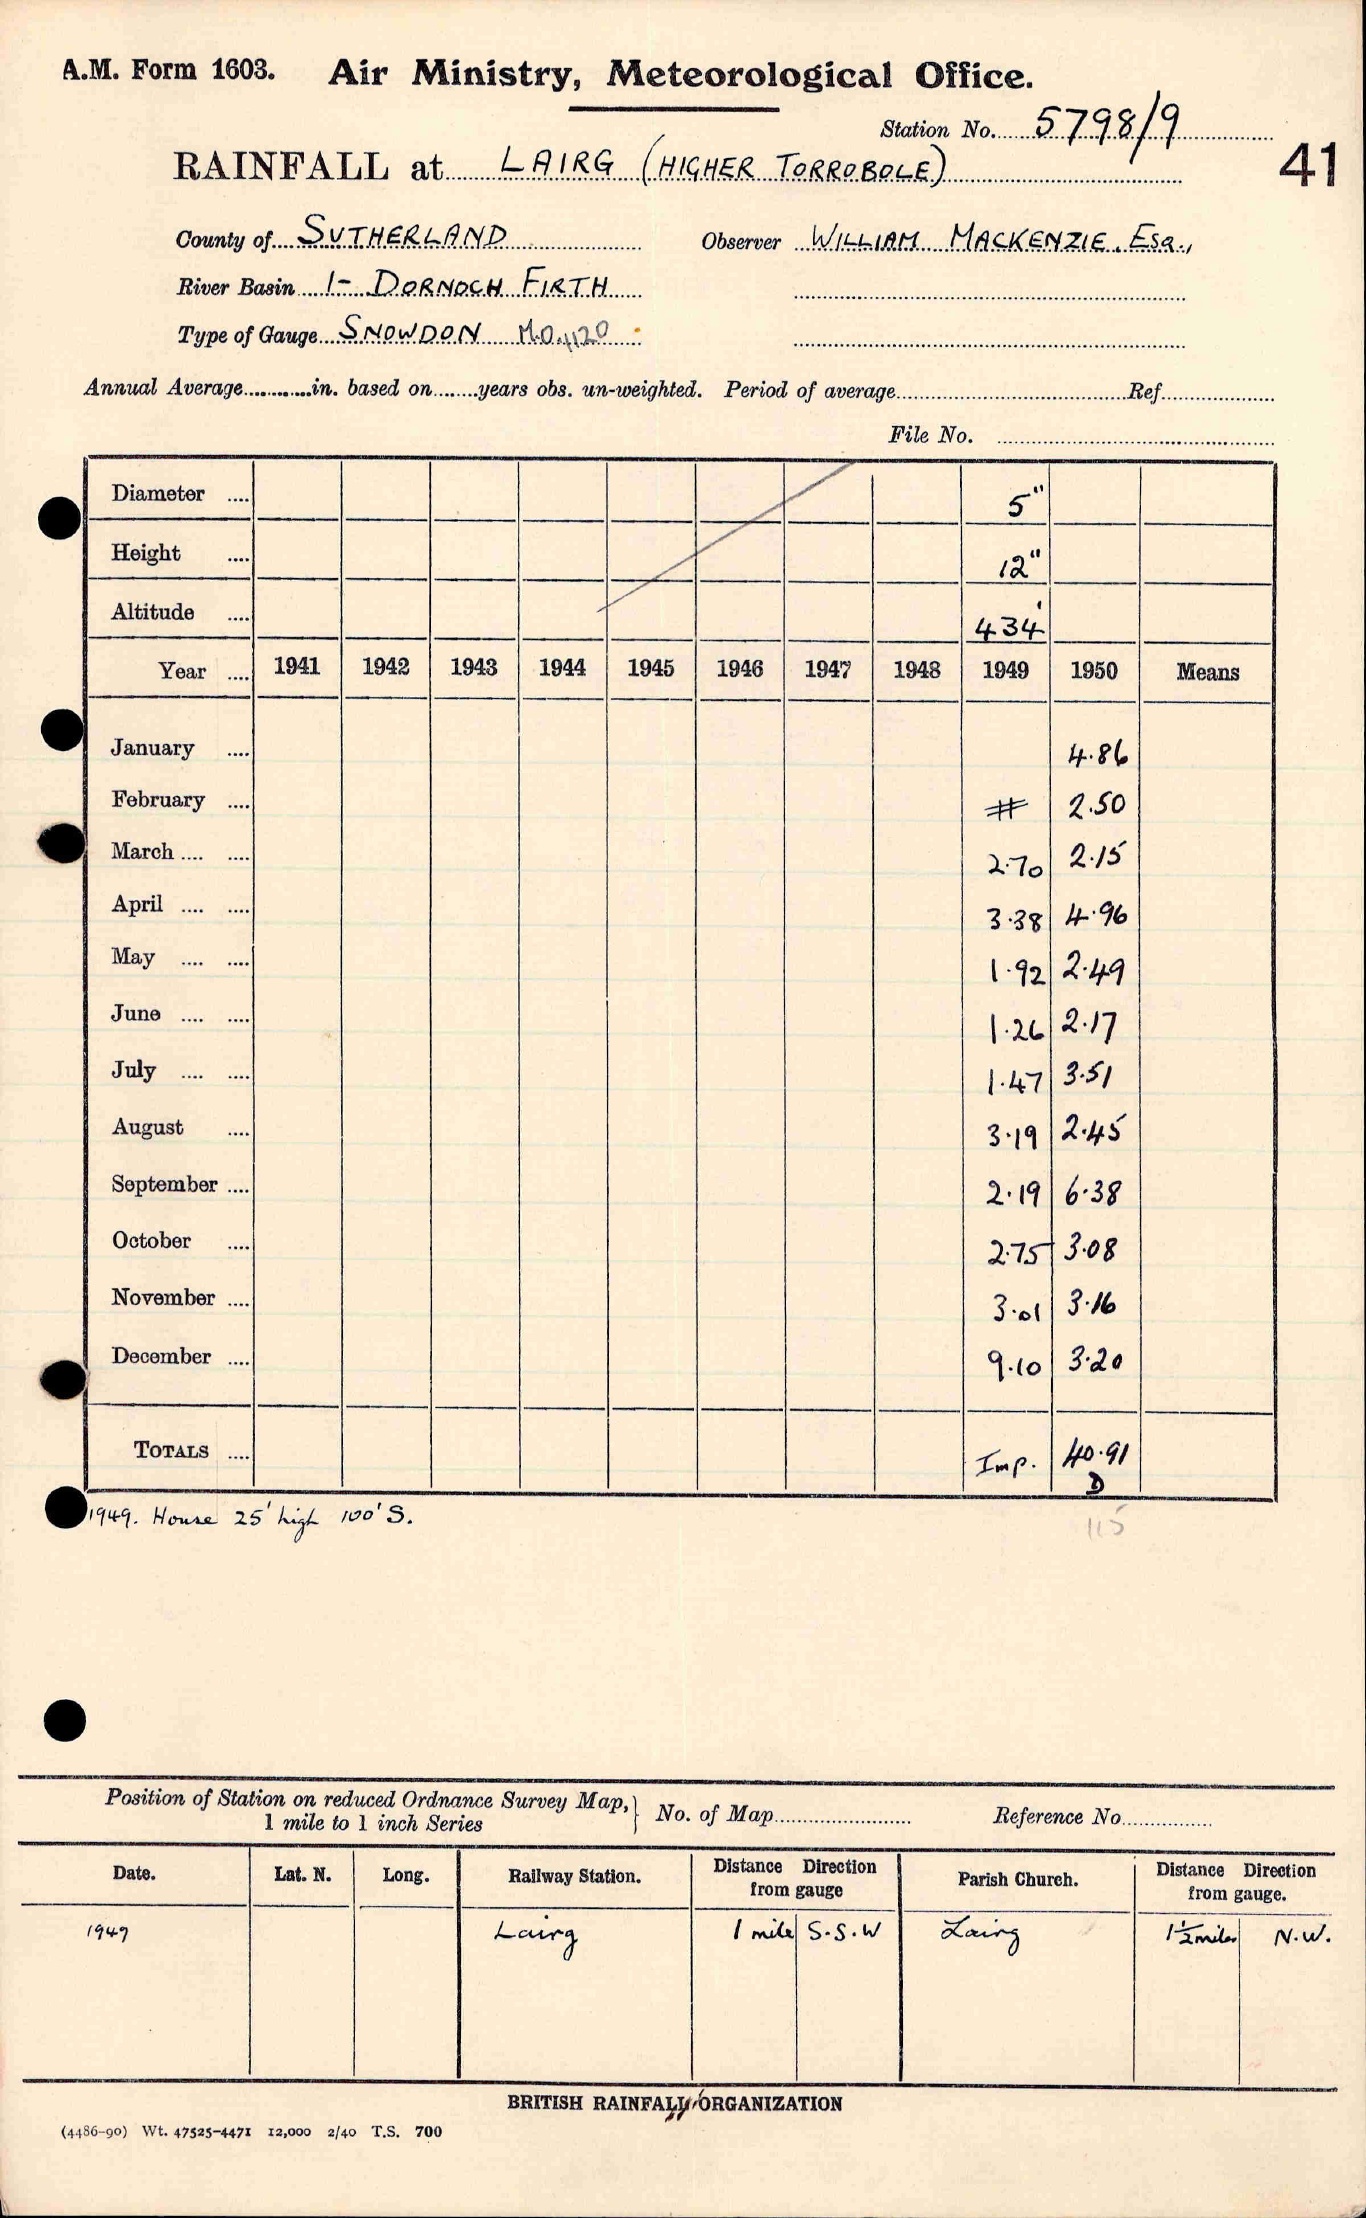 A.M. Form 1603. Air Ministry, Meteorological Office.
Station No. 5798/9
RAINFALL at LAIRG (HIGHER TORROBOLE)
41
County of SUTHERLAND Observer WILLIAM MACKENZIE, ESQ.,
River Basin 1- DORNOCH FIRTH
Type of Gauge SNOWDON M.O. 4120
Annual Average............in. based on........years obs. un-weighted. Period of average............Ref............
File No. ............
Diameter .... 5"
Height .... 12"
Altitude .... 434'
Year .... 1941 1942 1943 1944 1945 1946 1947 1948 1949 1950 Means
January .... 4.86
February .... # 2.50
March .... .... 2.70 2.15
April .... .... 3.38 4.96
May .... .... 1.92 2.49
June .... .... 1.26 2.17
July .... .... 1.47 3.51
August .... 3.19 2.45
September .... 2.19 6.38
October .... 2.75 3.08
November .... 3.01 3.16
December .... 9.10 3.20
TOTALS .... Imp. 40.91
D
1949. House 25' high 100' S.
115
Position of Station on reduced Ordnance Survey Map,
1 mile to 1 inch Series } No. of Map............ Reference No............
Date. Lat. N. Long. Railway Station. Distance Direction from gauge Parish Church. Distance Direction from gauge.
1949 Lairg 1 mile S.S.W Lairg 1½ miles N.W.
BRITISH RAINFALL ORGANIZATION
(4486-90) Wt. 47525-4471 12,000 2/40 T.S. 700